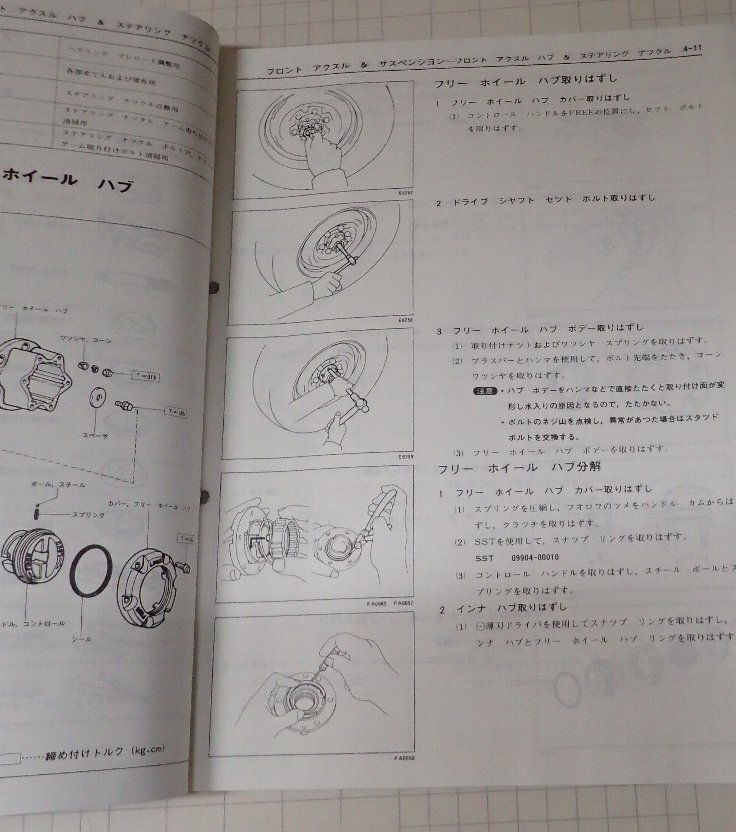 ト アクスル ハブ & ステアリング ナックル
ベアリング プレロード調整用
ステアリング ナックル
ステアリング ナックル アーム取り付け
清掃用
ステアリング ナックル
アーム取り付けボルト清掃用
ホイール ハブ
フリー ホイール ハブ
ワツシヤ, コーン
スペーサ
ボール, スチール
スプリング
カバー, フリー ホイール ハブ
ドル, コントロール
シール
……締め付けトルク (kg・cm)
フロント アクスル & サスペンション−フロント アクスル ハブ & ステアリング ナックル 4-11
フリー ホイール ハブ取りはずし
1 フリー ホイール ハブ カバー取りはずし
(1) コントロール ハンドルをFREEの位置にし, セツト ボルト
を取りはずす。
E6757
2 ドライブ シヤフト セツト ボルト取りはずし
3 フリー ホイール ハブ ボデー取りはずし
(1) 取り付けナツトおよびワツシヤ スプリングを取りはずす。
(2) ブラスバーとハンマを使用して, ボルト先端をたたき, コーン
ワツシヤを取りはずす。
注意 ・ハブ ボデーをハンマなどで直接たたくと取り付け面が変
形し水入りの原因となるので, たたかない。
・ボルトのネジ山を点検し, 異常があつた場合はスタツド
ボルトを交換する。
(3) フリー ホイール ハブ ボデーを取りはずす。
フリー ホイール ハブ分解
1 フリー ホイール ハブ カバー取りはずし
(1) スプリングを圧縮し, フオロワのツメをハンドル カムからは
ずし, クラツチを取りはずす。
(2) SSTを使用して, スナツプ リングを取りはずす。
SST 09904-00010
(3) コントロール ハンドルを取りはずし, スチール ボールとス
プリングを取りはずす。
2 インナ ハブ取りはずし
(1) ⊖薄刃ドライバを使用してスナツプ リングを取りはずし,
ンナ ハブとフリー ホイール ハブ リングを取りはずす